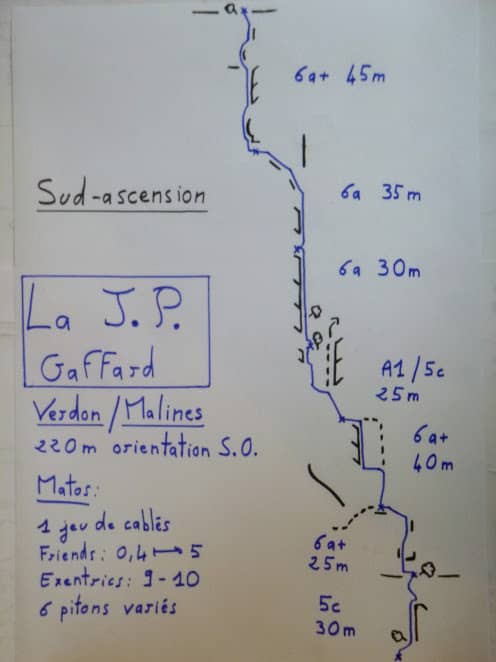 a
6a+ 45m
Sud-ascension
6a 35m
6a 30m
La J.P.
Gaffard
A1/5c
25m
Verdon/Malines
220m orientation S.O.
6a+
40m
Matos:
1 jeu de cablés
Friends: 0,4 ⟼ 5
Exentrics: 9-10
6 pitons variés
6a+
25m
5c
30m
a